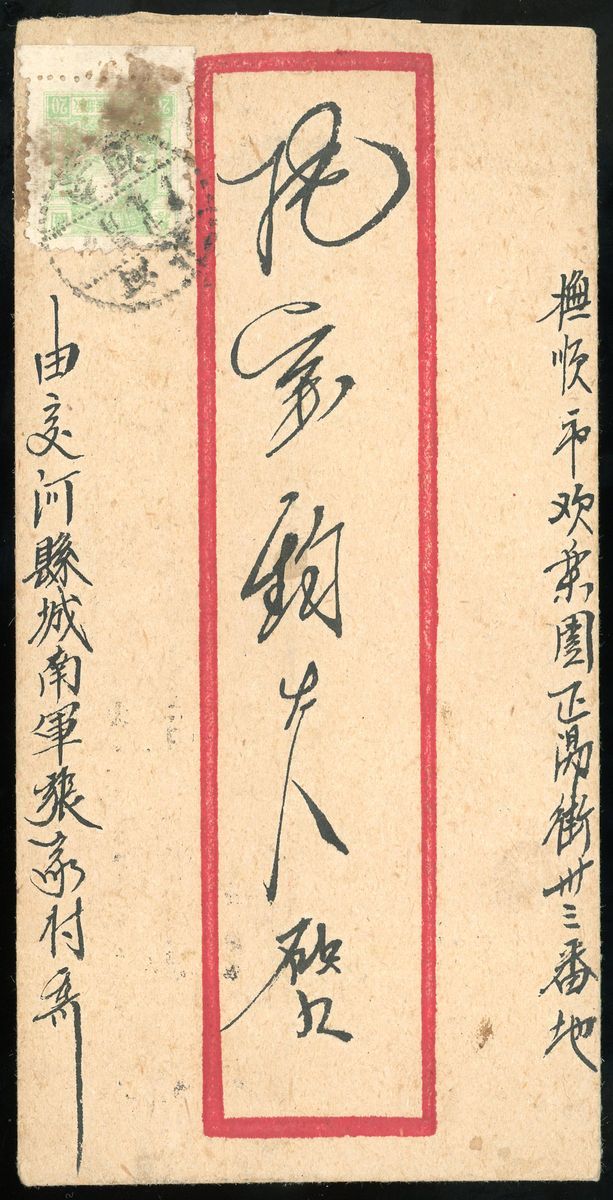 撫順市欢樂園正陽街卅三番地
家鈞大人啟
由交河縣城南軍張家村寄
20